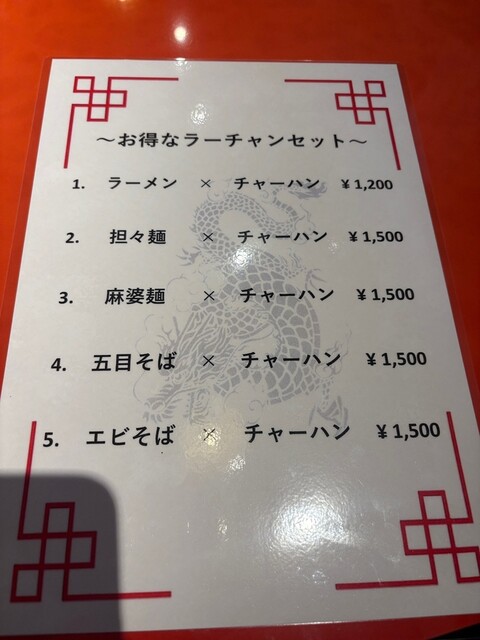 ～お得なラーチャンセット～
1. ラーメン × チャーハン ¥1,200
2. 担々麺 × チャーハン ¥1,500
3. 麻婆麺 × チャーハン ¥1,500
4. 五目そば × チャーハン ¥1,500
5. エビそば × チャーハン ¥1,500